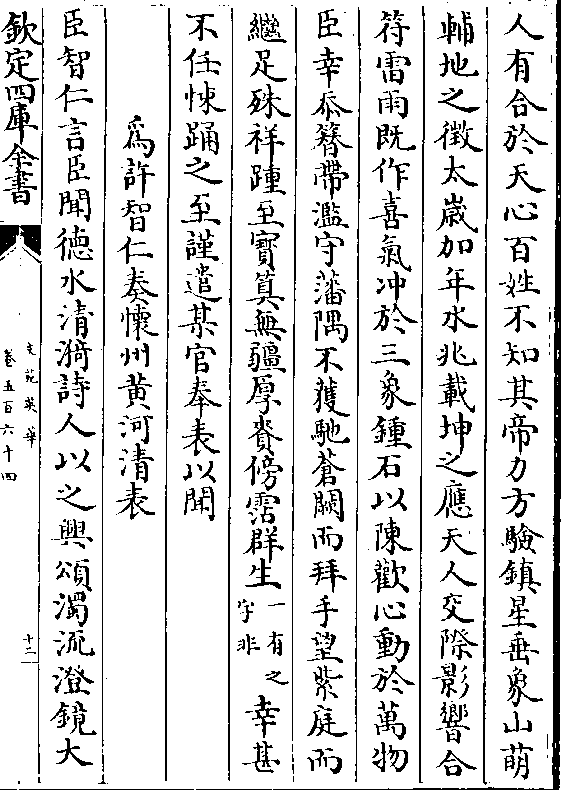 人有合於天心百姓不知其帝力方驗鎮星垂象山萌
輔地之徴太嵗加年水兆載坤之應天人交際影響合
符雷雨既作喜氣冲於三象鍾石以陳歡心動於萬物
臣幸忝簪帶濫守藩隅不獲馳蒼闕而拜手望紫庭而
繼足殊祥踵至寳筭無疆厚賚傍霑群生一有之字非幸甚
不任悚踊之至謹遣某官奉表以聞
為許智仁奏懷州黄河清表
臣智仁言臣聞德水清漪詩人以之興頌濁流澄鏡大
欽定四庫全書
文苑英華
卷五百六十四
十二